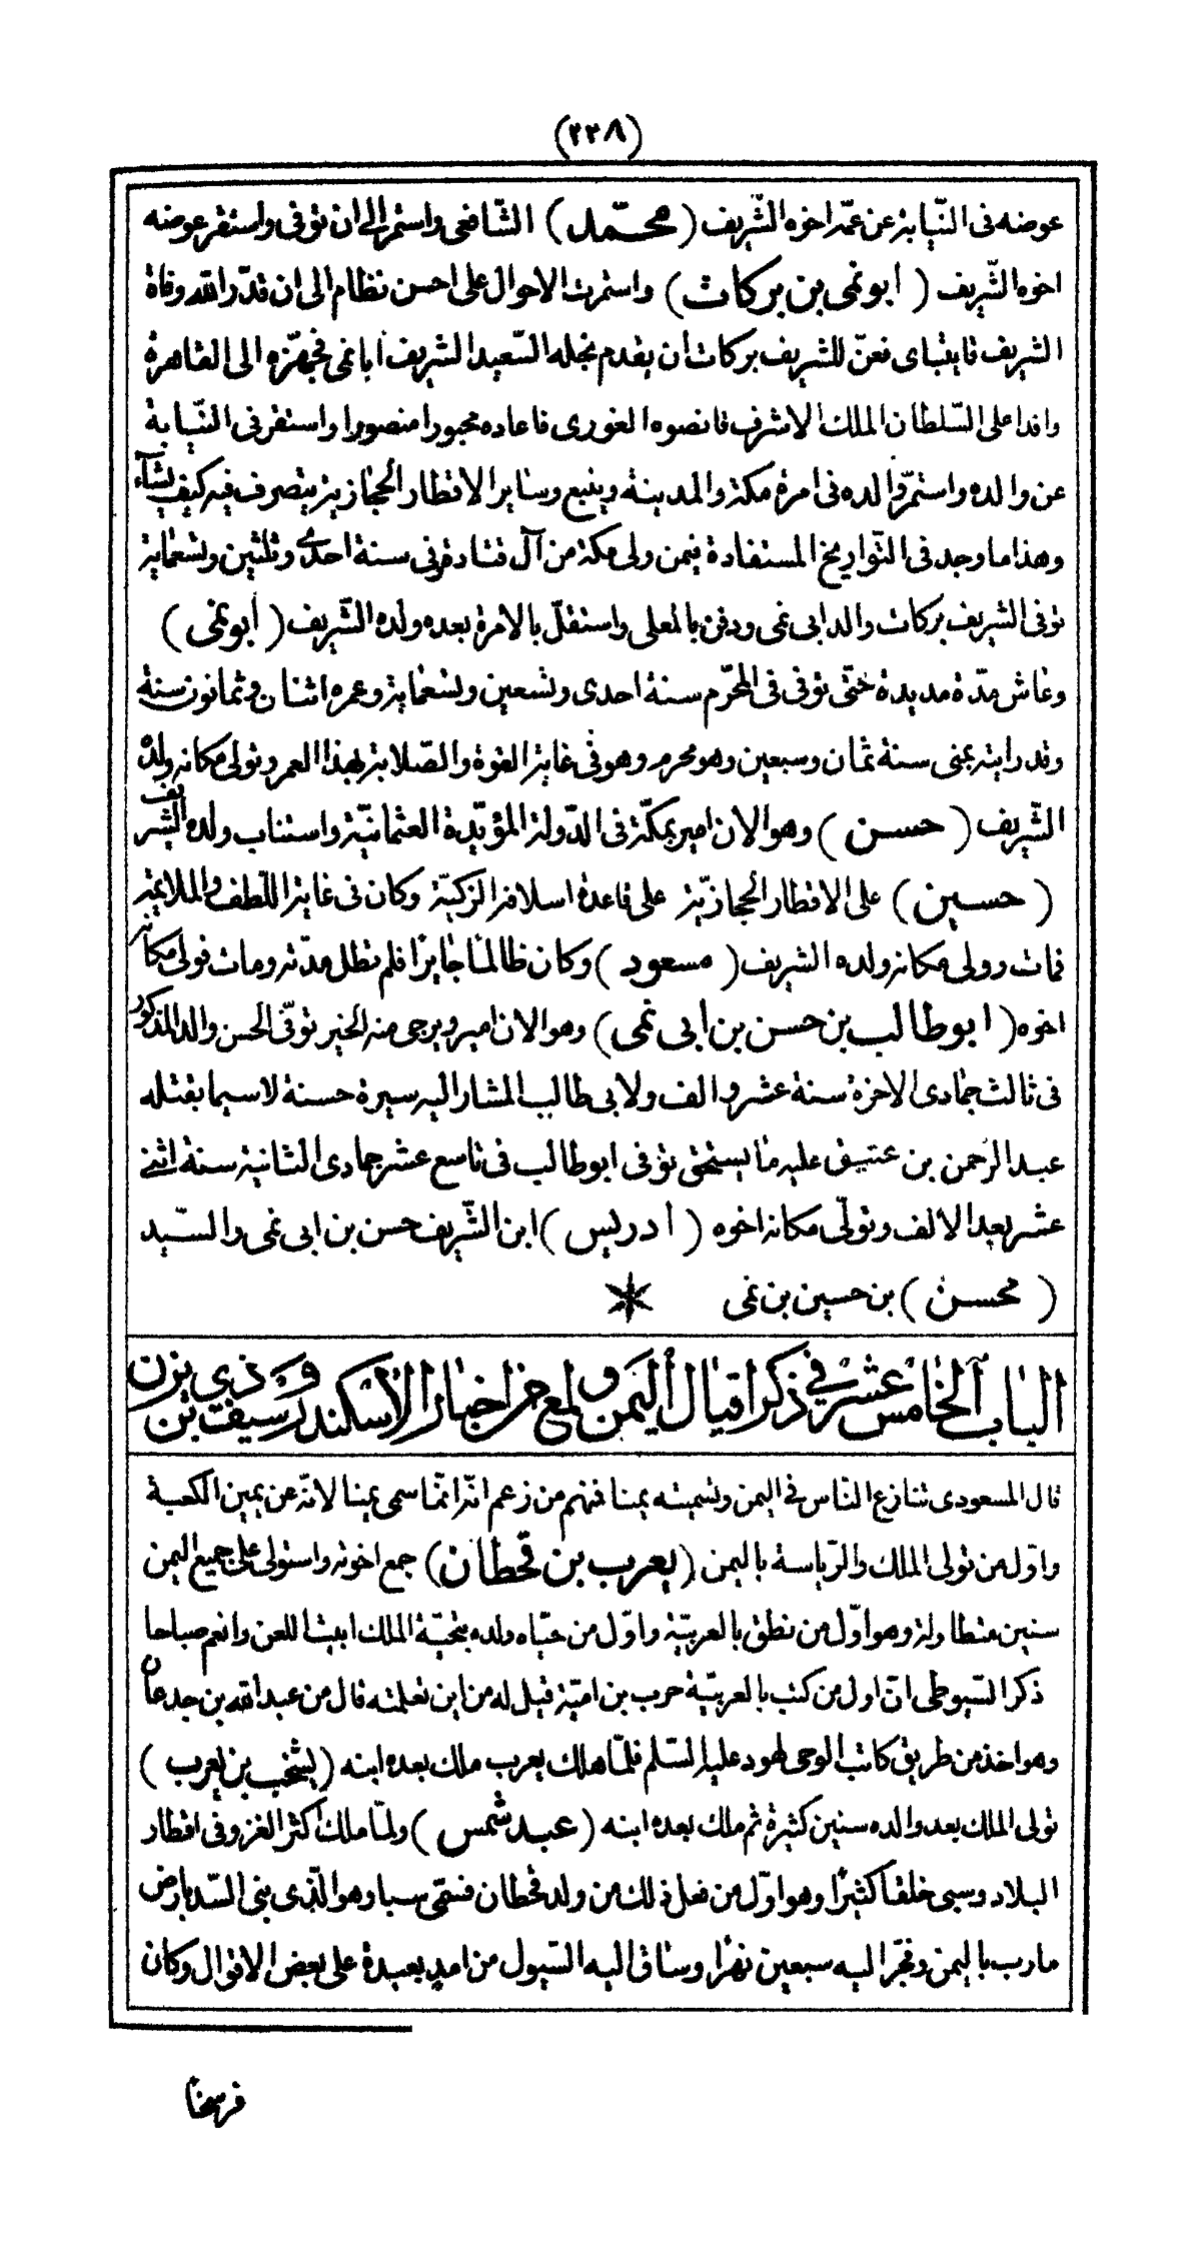 (٢٣٨)
عوضه فى النّيابة عن عمّه اخوه الشّريف (محمّد) الشّافعى واستمر الى ان توفى واستقر عوضه
اخوه الشّريف (ابو نمى بن بركات) واستمرت الاحوال على احسن نظام الى ان قدّر الله وفاة
الشريف قايتباى فعنّ للشريف بركات ان يقدم نجله السّعيد الشريف ابا نمى فجهّزه الى القاهرة
وافدا على السّلطان الملك الاشرف قانصوه الغورى فاعاده مجبورا منصورا واستقر فى النّيابة
عن والده واستمرّ والده فى امرة مكة والمدينة وينبع وساير الاقطار الحجازية يتصرف فيه كيف يشآء
وهذا ما وجد فى التّواريخ المستفادة فيمن ولى مكة من آل قتادة وفى سنة احدى وثلثين وتسعماية
توفى الشريف بركات والد ابى نمى ودفن بالمعلى واستقلّ بالامرة بعده ولده الشّريف (ابو نمى)
وعاش مدّة مديدة حتّى توفى فى المحرّم سنة احدى وتسعين وتسعماية وعمره اثنان وثمانون سنة
وقد رايته بمنى سنة ثمان وسبعين وهو محرم وهو فى غاية القوة والصّلابة بهذا العمر وتولى مكانه ولده
الشّريف (حسن) وهو الان امير بمكّة فى الدّولة المؤيّدة العثمانيّة واستناب ولده الشريف
(حسين) على الاقطار الحجازيّة على قاعدة اسلافه الزكيّة وكان فى غاية اللّطف والملايمة
فمات وولى مكانه ولده الشريف (مسعود) وكان ظالما جايرا فلم تطل مدّته ومات فولى مكانه
اخوه (ابو طالب بن حسن بن ابى نمى) وهو الان امير ويرجى منه الخير توفّى الحسن والد المذكور
فى ثالث جمادى الاخرة سنة عشر والف ولابى طالب المشار اليه سيرة حسنة لا سيما بقتله
عبد الرّحمن بن عتيق عليه ما يستحق توفى ابو طالب فى تاسع عشر جمادى الثانية سنة اثنے
عشر بعد الالف وتولّى مكانه اخوه (ادريس) ابن الشّريف حسن بن ابى نمى والسّيد
(محسن) بن حسين بن نمى
الباب الخامس عشر فى ذكر اقيال اليمن ولمع من اخبار الاسكندر وسيف بن ذى يزن
قال المسعودى تنازع النّاس فى اليمن وتسميته يمنا فمنهم من زعم انّه انّما سمى يمنا لانّه عن يمين الكعبة
واوّل من تولى الملك والرّياسة باليمن (يعرب بن قحطان) جمع اخوته واستولى على جميع اليمن
سنين متطاولة وهو اوّل من نطق بالعربيّة واوّل من حيّاه ولده بتحيّة الملك ابيت اللعن وانعم صباحا
ذكر السّيوطى انّ اول من كتب بالعربيّة حرب بن اميّة قيل له من اين تعلمته قال من عبد الله بن جدعان
وهو اخذ من طريق كاتب الوحى لهود عليه السّلم فلمّا هلك يعرب ملك بعده ابنه (يشخب بن يعرب)
تولى الملك بعد والده سنين كثيرة ثم ملك بعده ابنه (عبد شمس) ولمّا ملك اكثر الغزو فى اقطار
البلاد وسبى خلقا كثيرا وهو اوّل من فعل ذلك من ولد قحطان فسمّى سبا وهو الّذى بنى السّد بارض
مارب باليمن وفجّر اليه سبعين نهرا وساق اليه السّيول من امد بعيدة على بعض الاقوال وكان
فرسخا